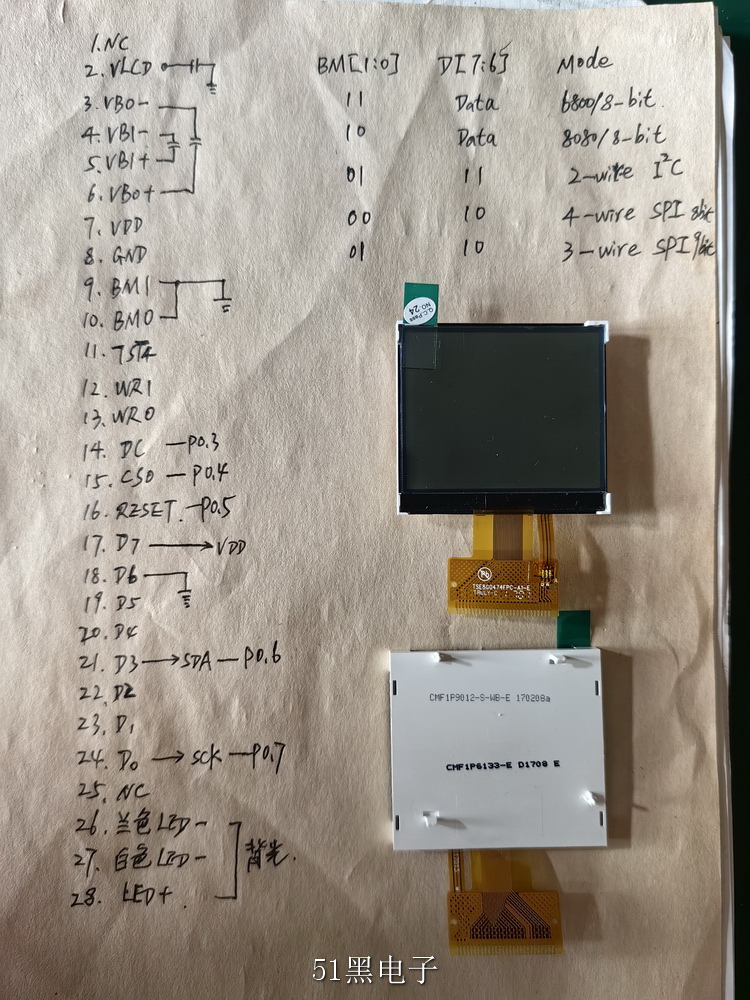 1. NC
2. VLCD
3. VB0-
4. VB1-
5. VB1+
6. VB0+
7. VDD
8. GND
9. BM1
10. BM0
11. TST4
12. WR1
13. WR0
14. DC — P0.3
15. CS0 — P0.4
16. RESET. — P0.5
17. D7 → VDD
18. D6
19. D5
20. D4
21. D3 → SDA — P0.6
22. D2
23. D1
24. D0 → SCK — P0.7
25. NC
26. 兰色LED-
27. 白色LED-
28. LED+
背光.
BM[1:0] D[7:6] Mode
11 Data 6800/8-bit.
10 Data 8080/8-bit
01 11 2-wire I²C
00 10 4-wire SPI 8bit
01 10 3-wire SPI 9bit
Q.C Pass
NO:24
TSE8G0474FPC-A1-E
TRULY-C
CMF1P9012-S-WB-E 170208a
CMF1P6133-E D1708 E
51黑电子